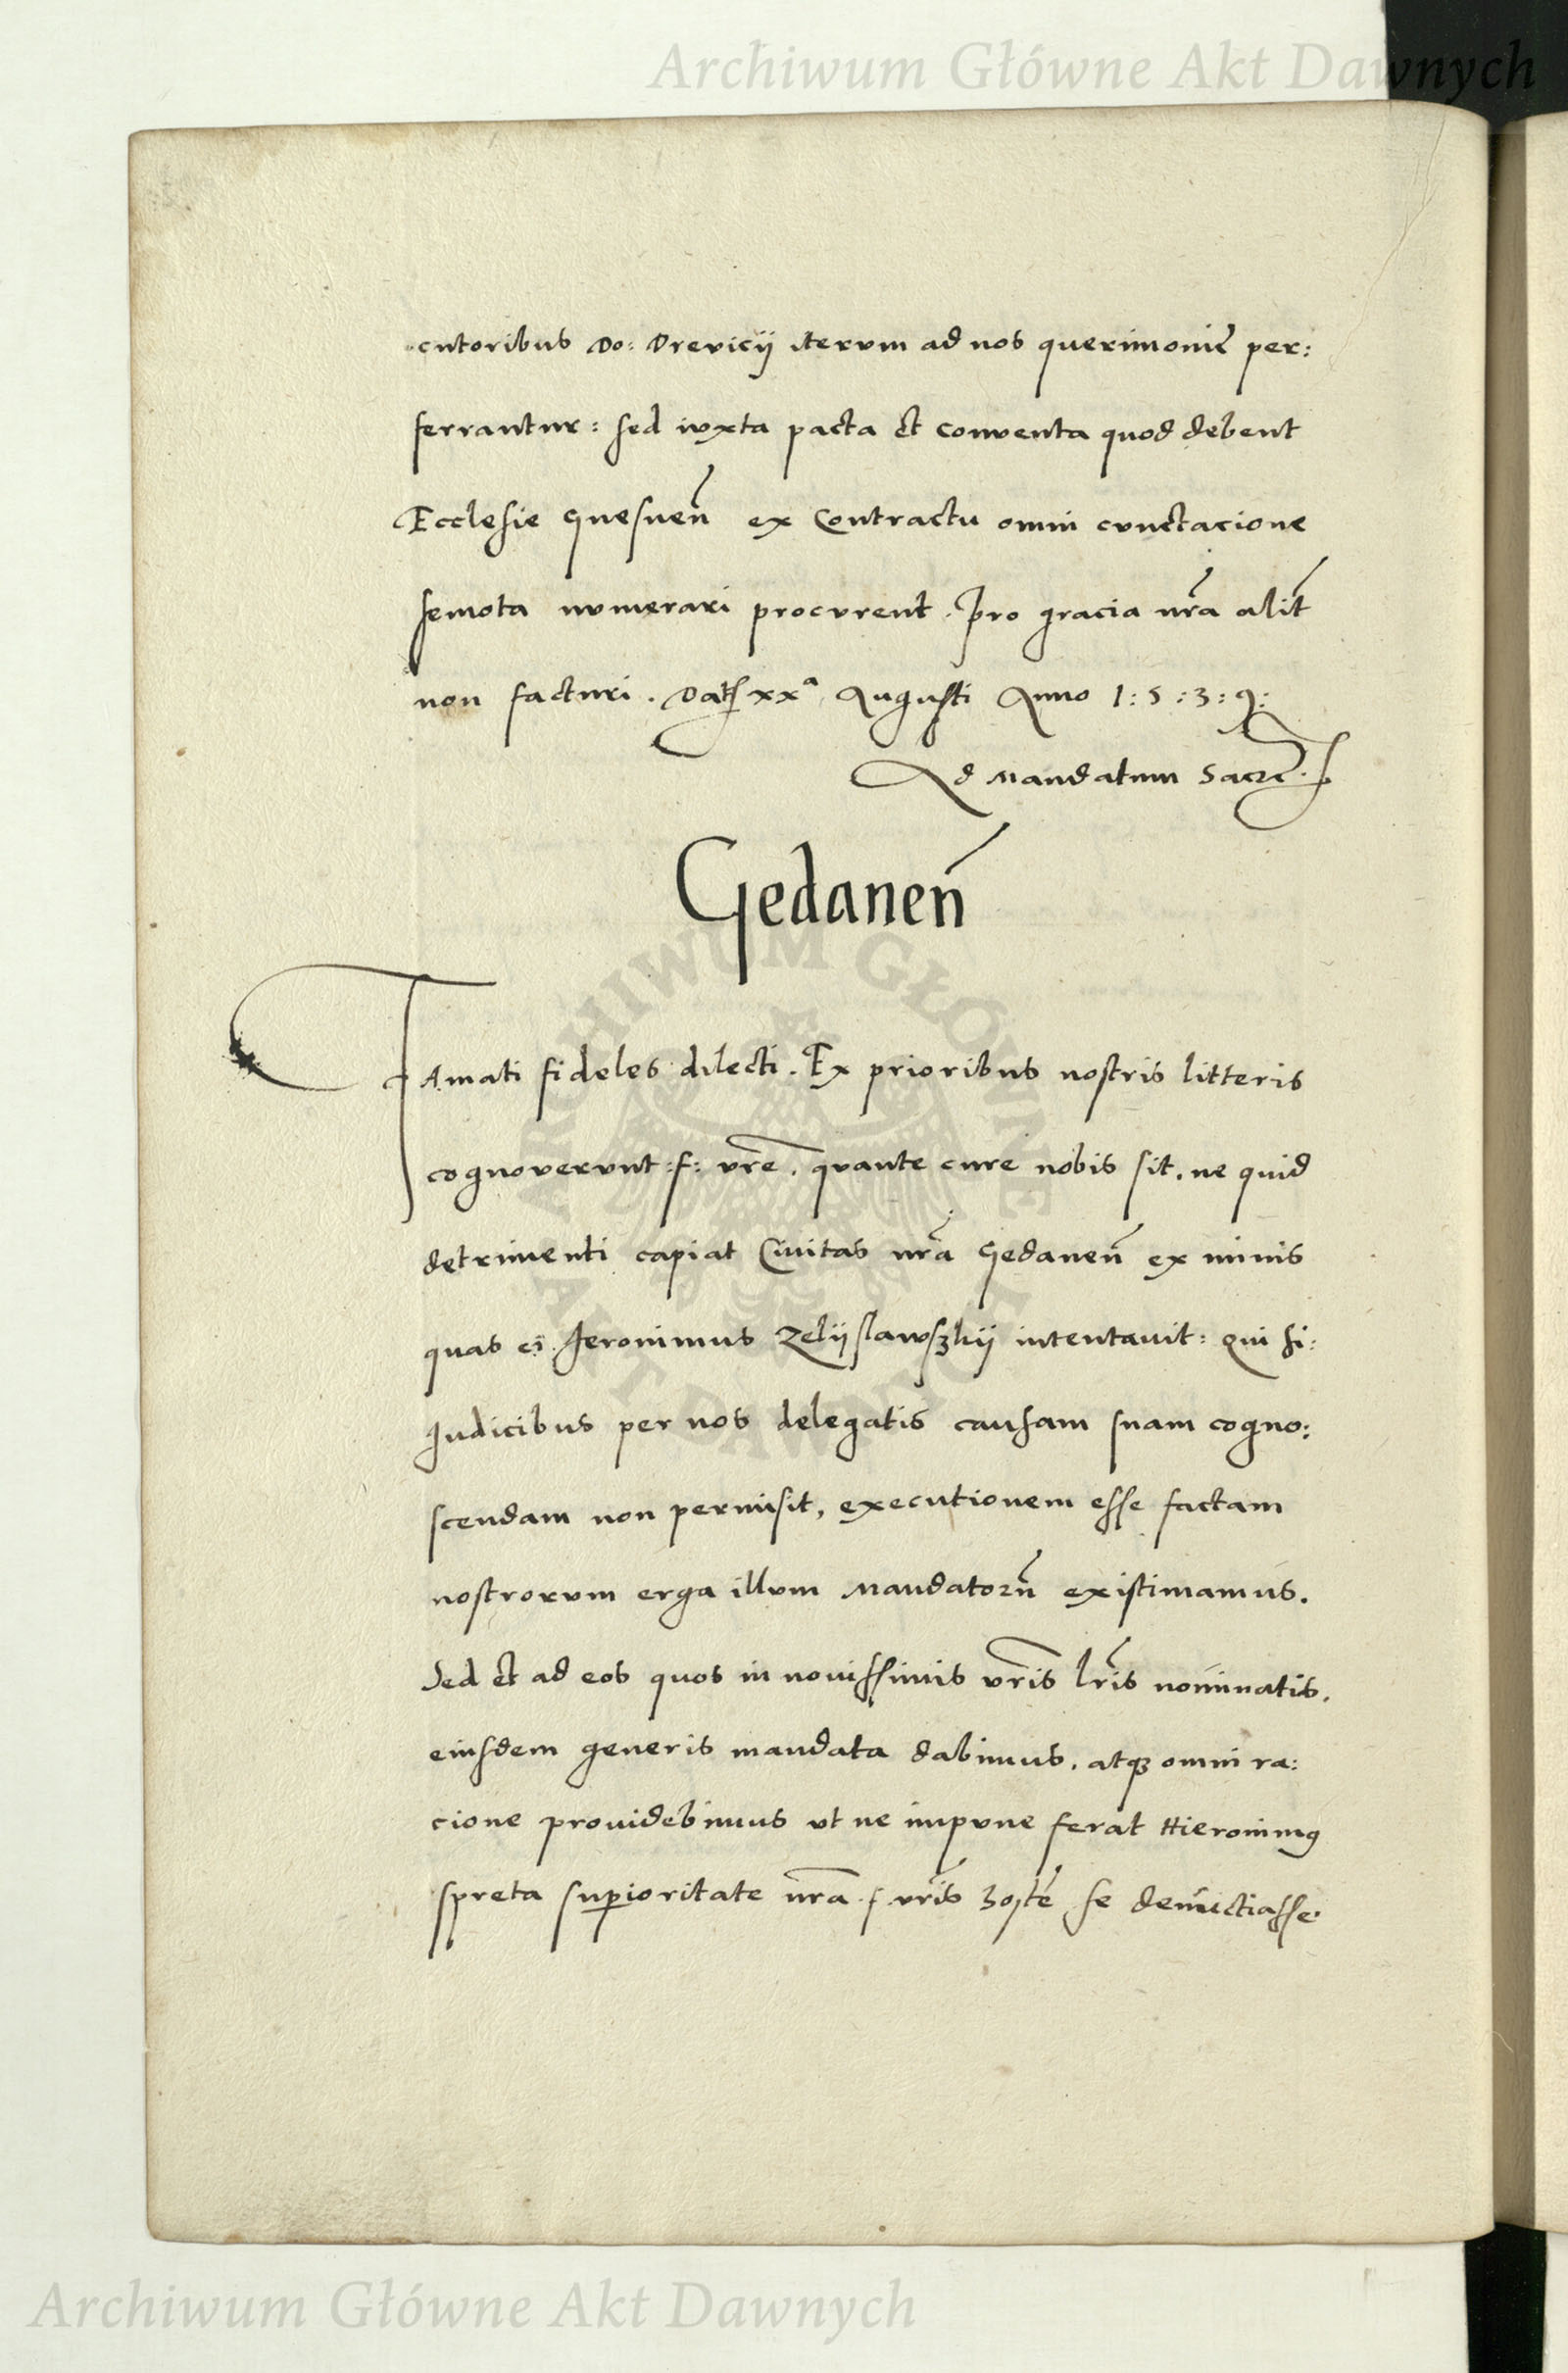 Archiwum Główne Akt Dawnych
cutoribus Do: Drevicÿ iterum ad nos querimoniē per:
ferrantur: sed iuxta pacta et Conuenta quod debent
Ecclesie Gnesneñ ex Contractu omni cunctacione
semota numerari procurent. Pro gracia nr̃a alit̃
non facturi. Datʃ xxª Augusti Anno 1:5:3:9:
Ad Mandatum Sacre.
Gedaneñ
Famati fideles dilecti. Ex prioribus nostris litteris
cognoverunt :f: vr̃e. quante cure nobis sit. ne quid
detrimenti capiat Ciuitas nr̃a Gedaneñ ex minis
quas ei Jeronimus Zelÿslawskÿ intentauit: qui si:
Judicibus per nos delegatis causam suam cogno:
scendam non permisit, executionem esse factam
nostrorum erga illum Mandatorũ existimamus.
Sed et ad eos quos in nouissimis vr̃is lr̃is nominatis.
eiusdem generis mandata dabimus. atqꝫ omni ra:
cione prouidebimus ut ne impune ferat Hieronimꝰ
spreta suꝑioritate nr̃a f vr̃is hostē se denūctiasse
ARCHIWUM GŁÓWNE AKT DAWNYCH
Archiwum Główne Akt Dawnych